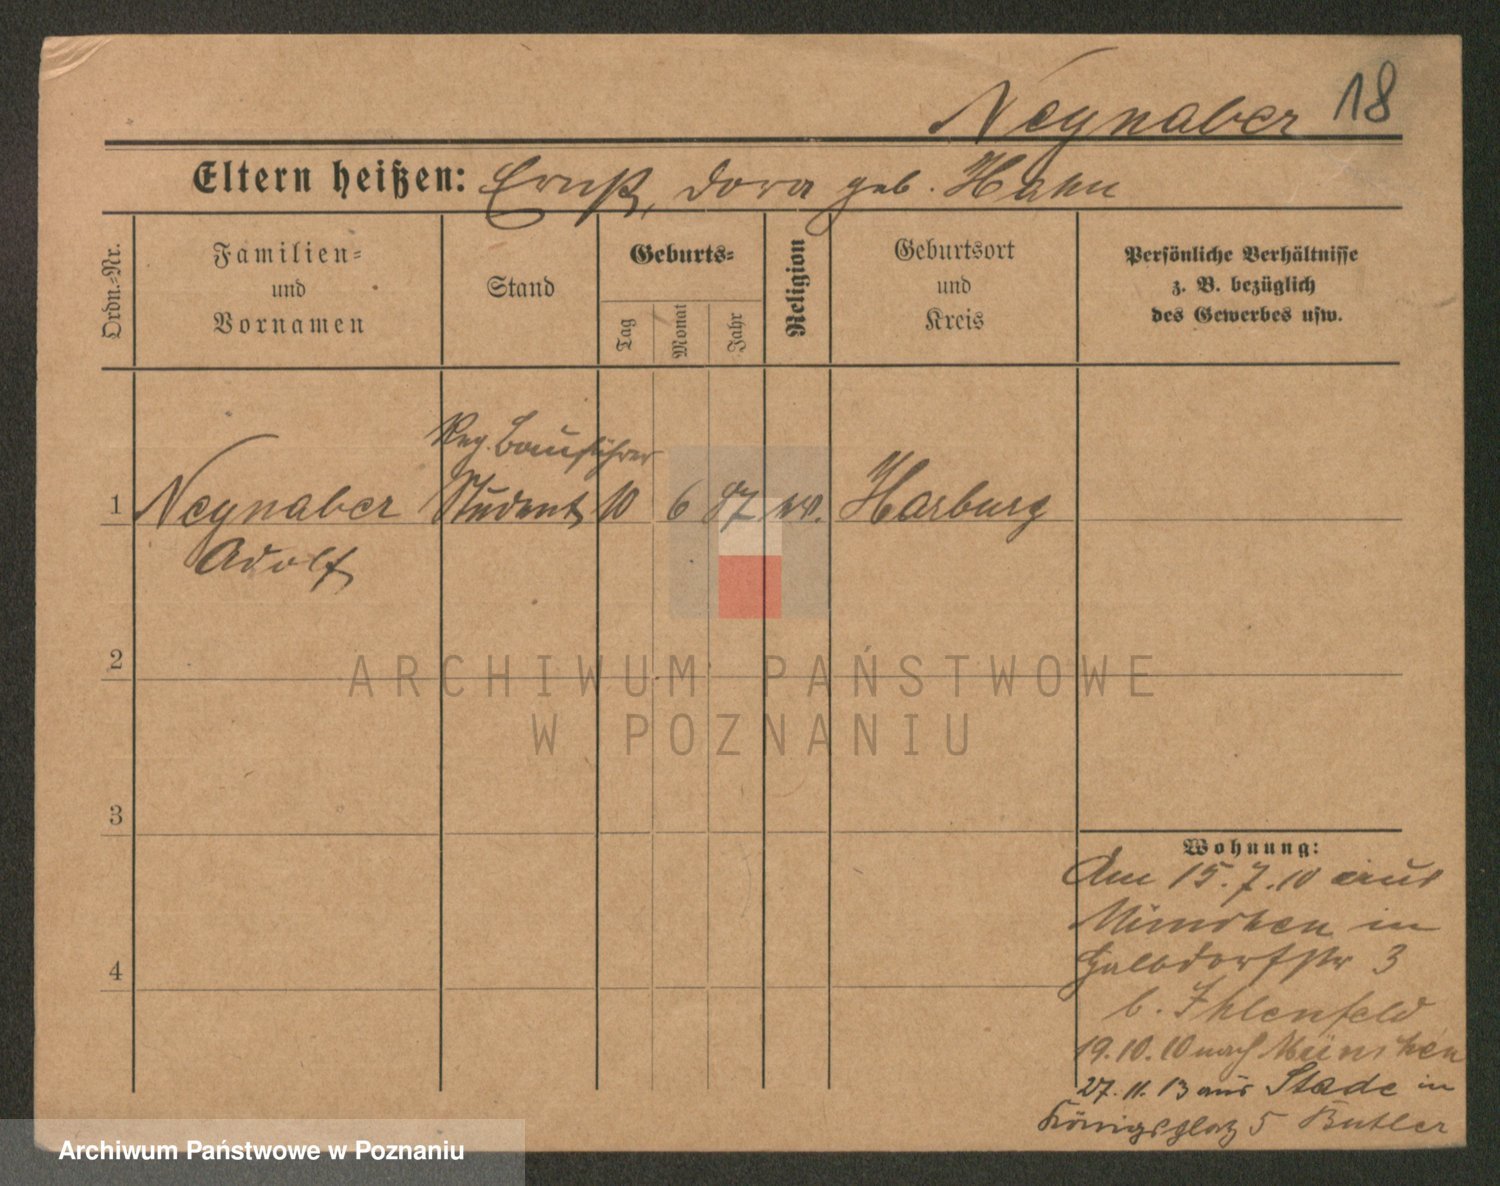 Neynaber 18
Eltern heißen: Ernst, Dora geb. Hahn
Ordn.-Nr.
Familien-
und
Vornamen
Stand
Geburts-
Tag
Monat
Jahr
Religion
Geburtsort
und
Kreis
Persönliche Verhältnisse
z. B. bezüglich
des Gewerbes usw.
Reg. Bauführer
1 Neynaber Student 10 6 87 ev. Harburg
Adolf
2
3
4
Wohnung:
Am 15.7.10 aus
München in
str 3
b. Ihlenfeld
19.10.10 nach München
27.11.13 aus Stade in
Königsplatz 5 Butler
ARCHIWUM PAŃSTWOWE
W POZNANIU
Archiwum Państwowe w Poznaniu